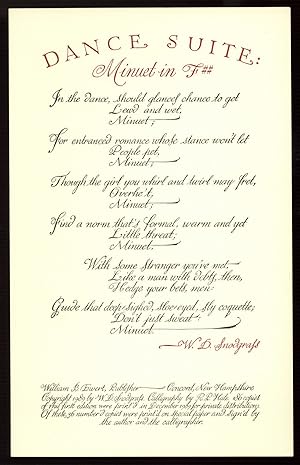 DANCE SUITE:
Minuet in F##
In the dance, should glances chance to get
Lewd and wet,
Minuet;
For entranced romance whose stance won't let
People pet,
Minuet;
Though the girl you whirl and twirl may fret,
Overhe't,
Minuet;
Find a norm that's formal, warm and yet
Little threat;
Minuet.
With some stranger you've met
Like a man with debts, then,
Hedge your bets, men;
Guide that deep-sighed, sloe-eyed, sly coquette;
Don't just sweat;
Minuet.
—W. D. Snodgrass
William B. Ewert, Publisher Concord, New Hampshire
Copyright 1989 by W. D. Snodgrass. Calligraphy by R. P. Hale. 36 copies
of this first edition were print'd in December 1989 for private distribution.
Of these, 36 number'd copies were print'd on special paper and sign'd by
the author and the calligrapher.